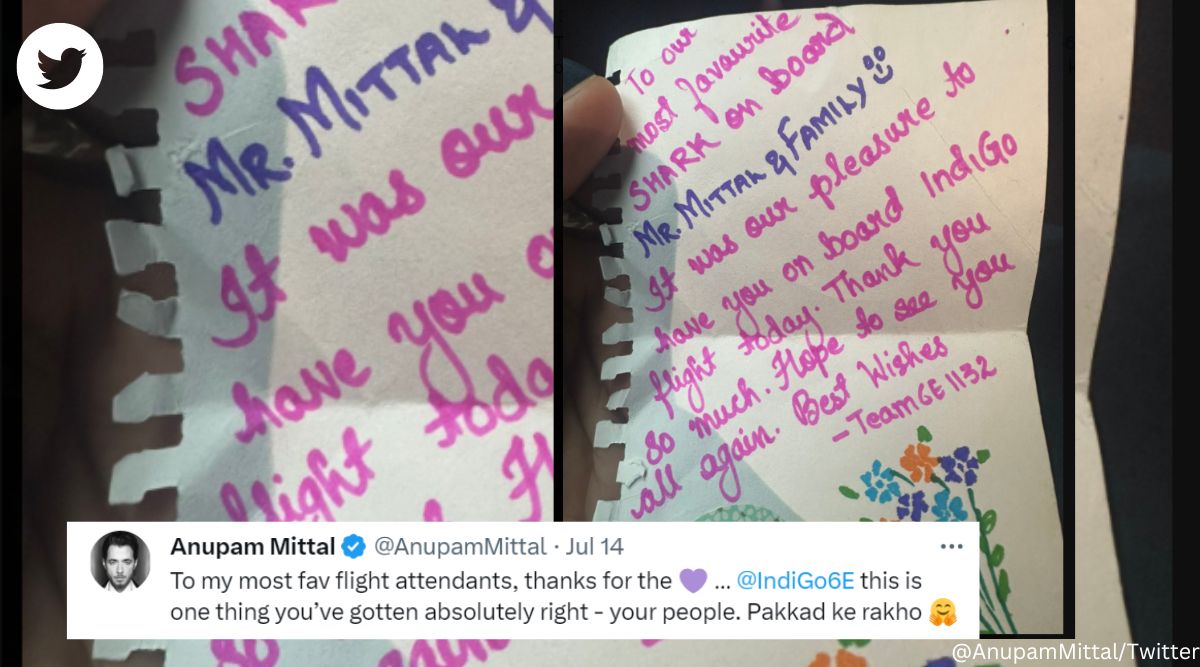 SHARK
MR. MITTAL &
It was our
have you o
flight toda
H
so
To our
most favourite
SHARK on board
MR. MITTAL & FAMILY
It was our pleasure to
have you on board IndiGo
flight today. Thank you
so much. Hope to see you
all again. Best Wishes
- TEAM 6E 1132
Anupam Mittal @AnupamMittal · Jul 14
To my most fav flight attendants, thanks for the 💜 ... @IndiGo6E this is
one thing you’ve gotten absolutely right - your people. Pakkad ke rakho 🤗
@AnupamMittal/Twitter